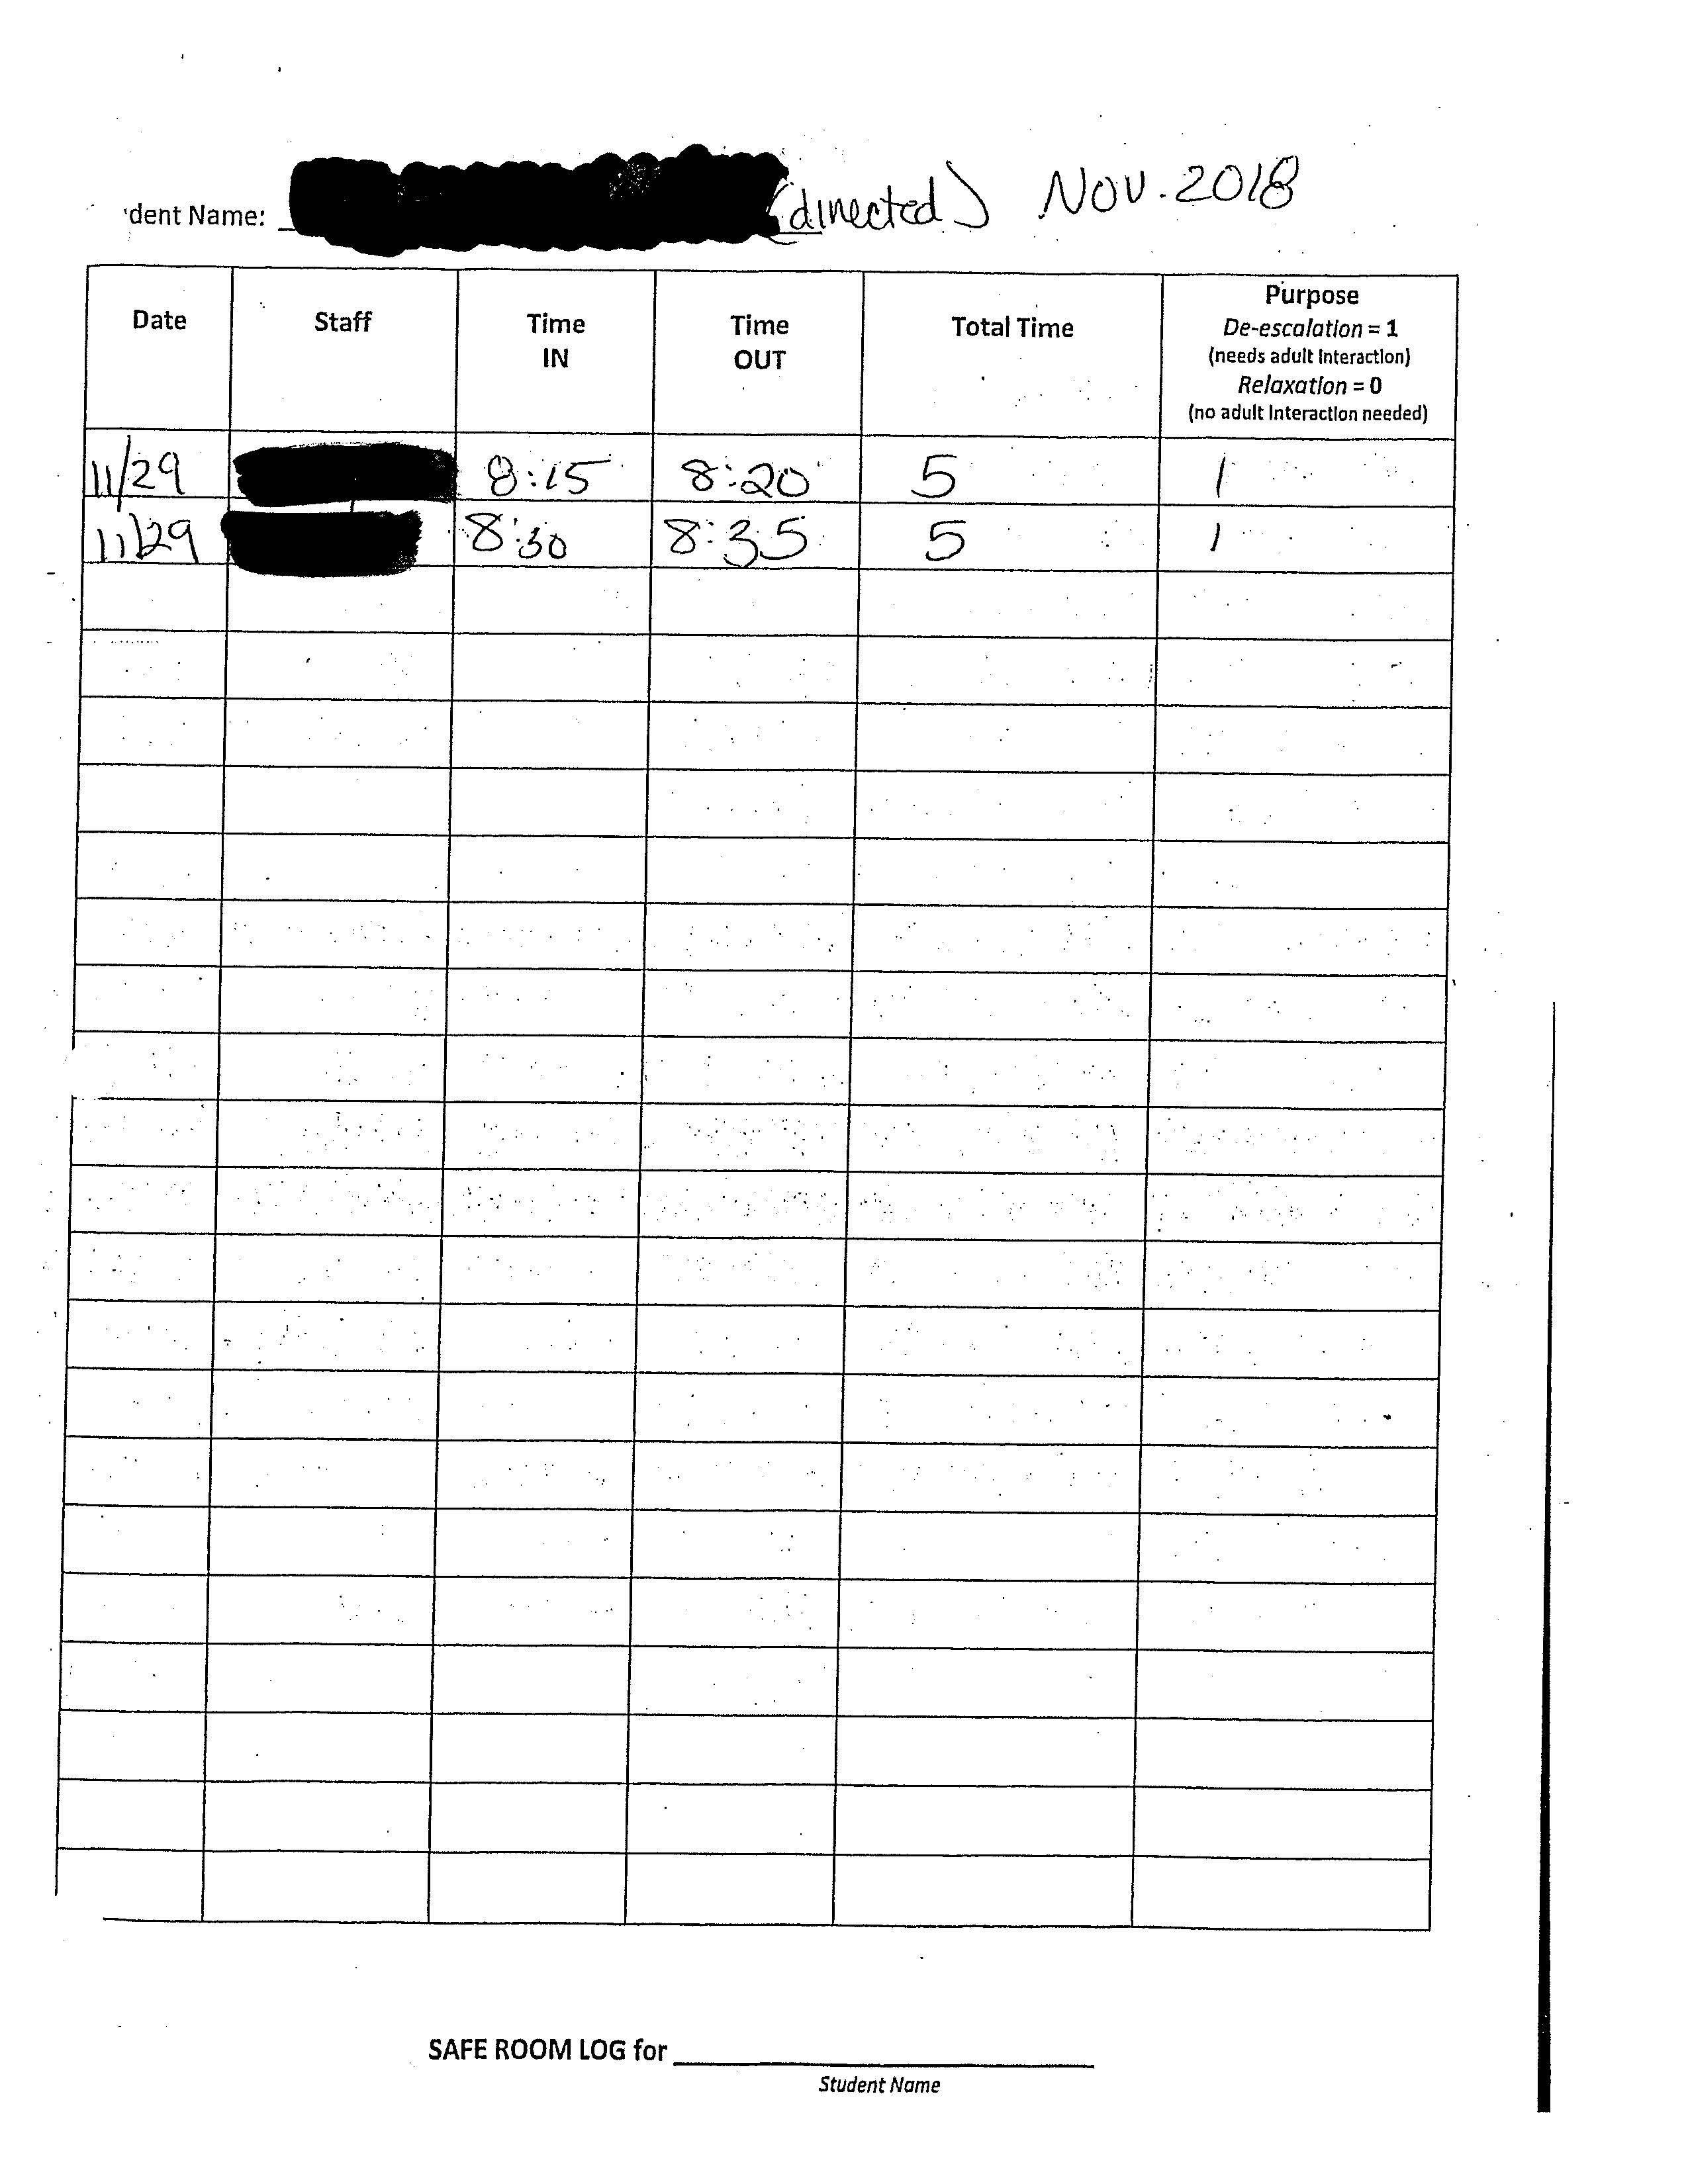 dent Name: (directed) Nov. 2018
Date Staff Time IN Time OUT Total Time Purpose
De-escalation = 1
(needs adult interaction)
Relaxation = 0
(no adult interaction needed)
11/29 8:15 8:20 5 1
11/29 8:30 8:35 5 1
SAFE ROOM LOG for
Student Name